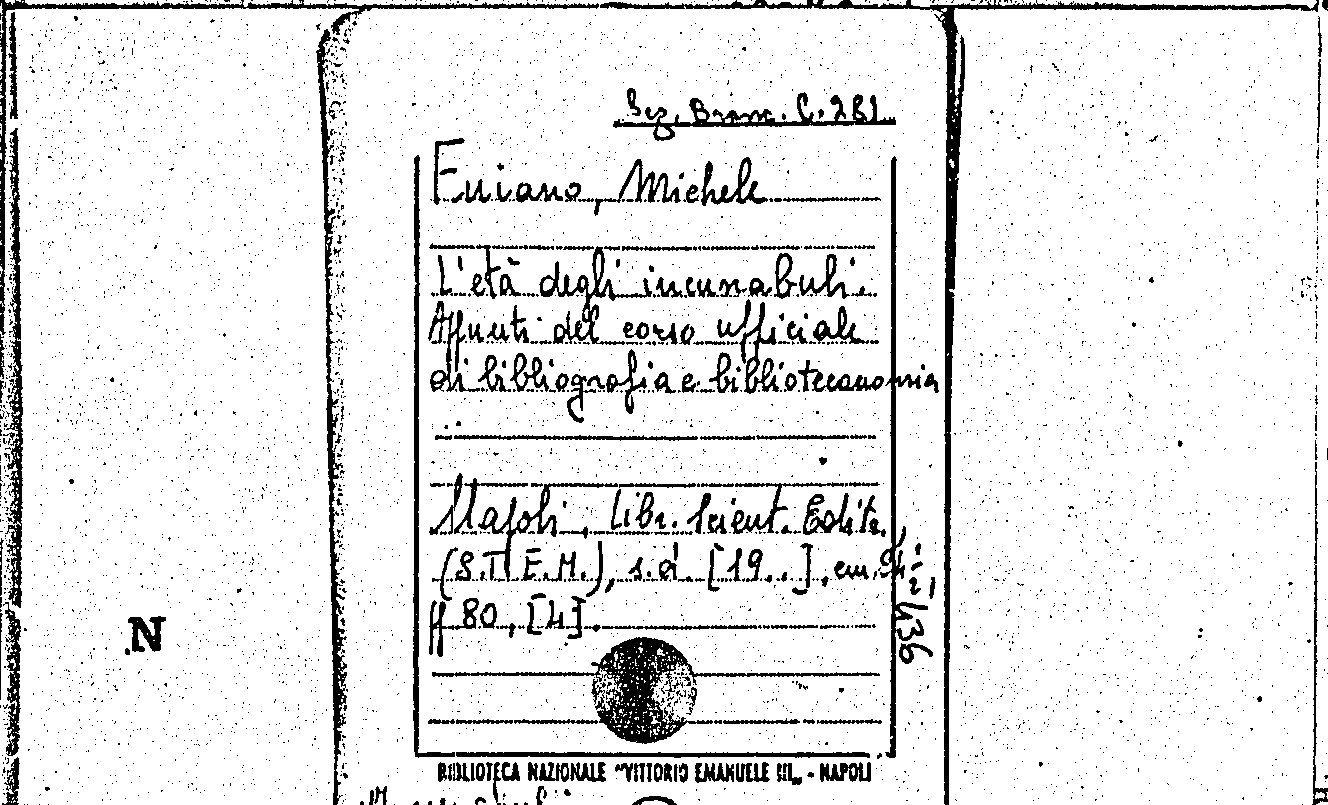 Sez. Branc. C. 281
Fuiano, Michele
L'età degli incunabuli.
Appunti del corso ufficiale
di bibliografia e biblioteconomia
Napoli, Libr. Scient. Edite.,
(S.T.E.M.), s.d. [19..], cm.
pp 80, [4].
436
N
BIBLIOTECA NAZIONALE "VITTORIO EMANUELE III" - NAPOLI